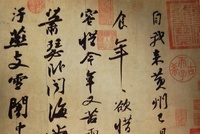 自我來黃州已
食年〻欲惜
容惜今年又苦
蕭瑟臥聞海
汙燕支雪闇中